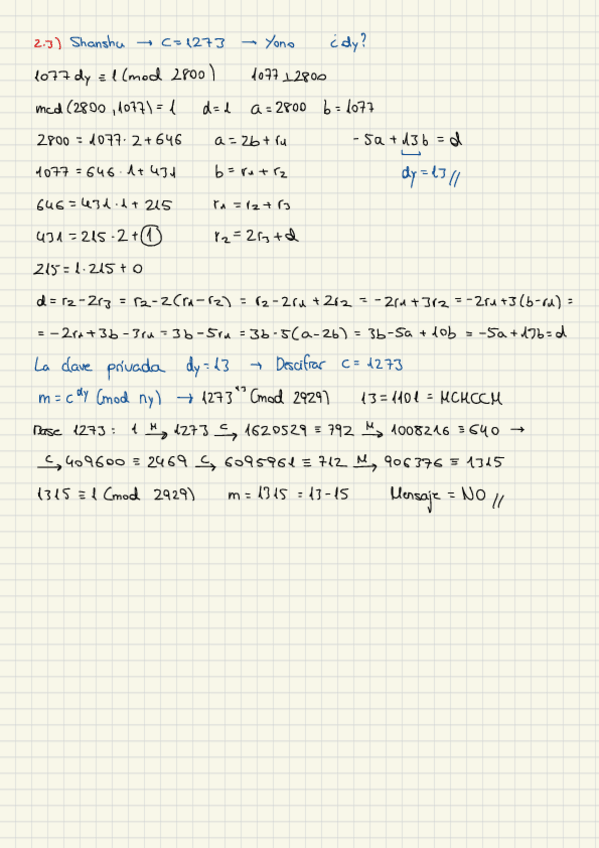 2.3) Shanshu → C = 1273 → Yono ¿dy?
1077 dy ≡ 1 (mod 2800) 1077 ⊥ 2800
mcd (2800, 1077) = 1 d = 1 a = 2800 b = 1077
2800 = 1077 · 2 + 646 a = 2b + r1 -5a + 13b = d
1077 = 646 · 1 + 431 b = r1 + r2 dy = 13 //
646 = 431 · 1 + 215 r1 = r2 + r3
431 = 215 · 2 + 1 r2 = 2r3 + d
215 = 1 · 215 + 0
d = r2 - 2r3 = r2 - 2(r1 - r2) = r2 - 2r1 + 2r2 = -2r1 + 3r2 = -2r1 + 3(b - r1) =
= -2r1 + 3b - 3r1 = 3b - 5r1 = 3b - 5(a - 2b) = 3b - 5a + 10b = -5a + 13b = d
La clave privada dy = 13 → Descifrar C = 1273
m = c^dy (mod ny) → 1273^13 (mod 2929) 13 = 1101 = MCMCCM
Base 1273: 1 M→ 1273 C→ 1620529 ≡ 792 M→ 1008216 ≡ 640 →
C→ 409600 ≡ 2469 C→ 6095961 ≡ 712 M→ 906376 ≡ 1315
1315 ≡ 1 (mod 2929) m = 1315 = 13-15 Mensaje = NO //